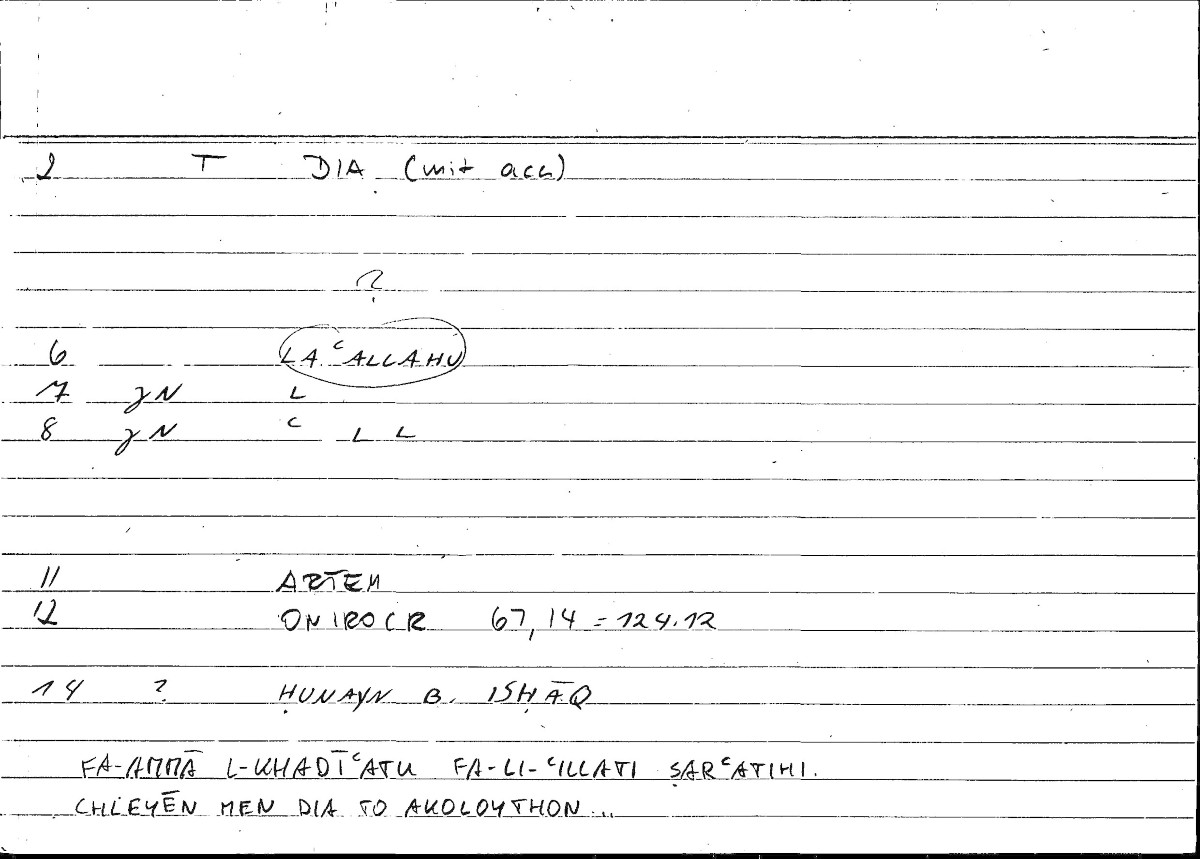 2 T DIA (mit acc)
?
6 LAᶜALLAHU
7 γN L
8 γN ᶜ L L
11 ARTEM
12 ONIROCR 67,14 = 124.12
14 ? ḤUNAYN B. ISḤĀQ
FA-AMMĀ L-KHADĪᶜATU FA-LI-ᶜILLATI ṢARᶜATIHI.
CHLEYĒN MEN DIA TO AKOLOYTHON...